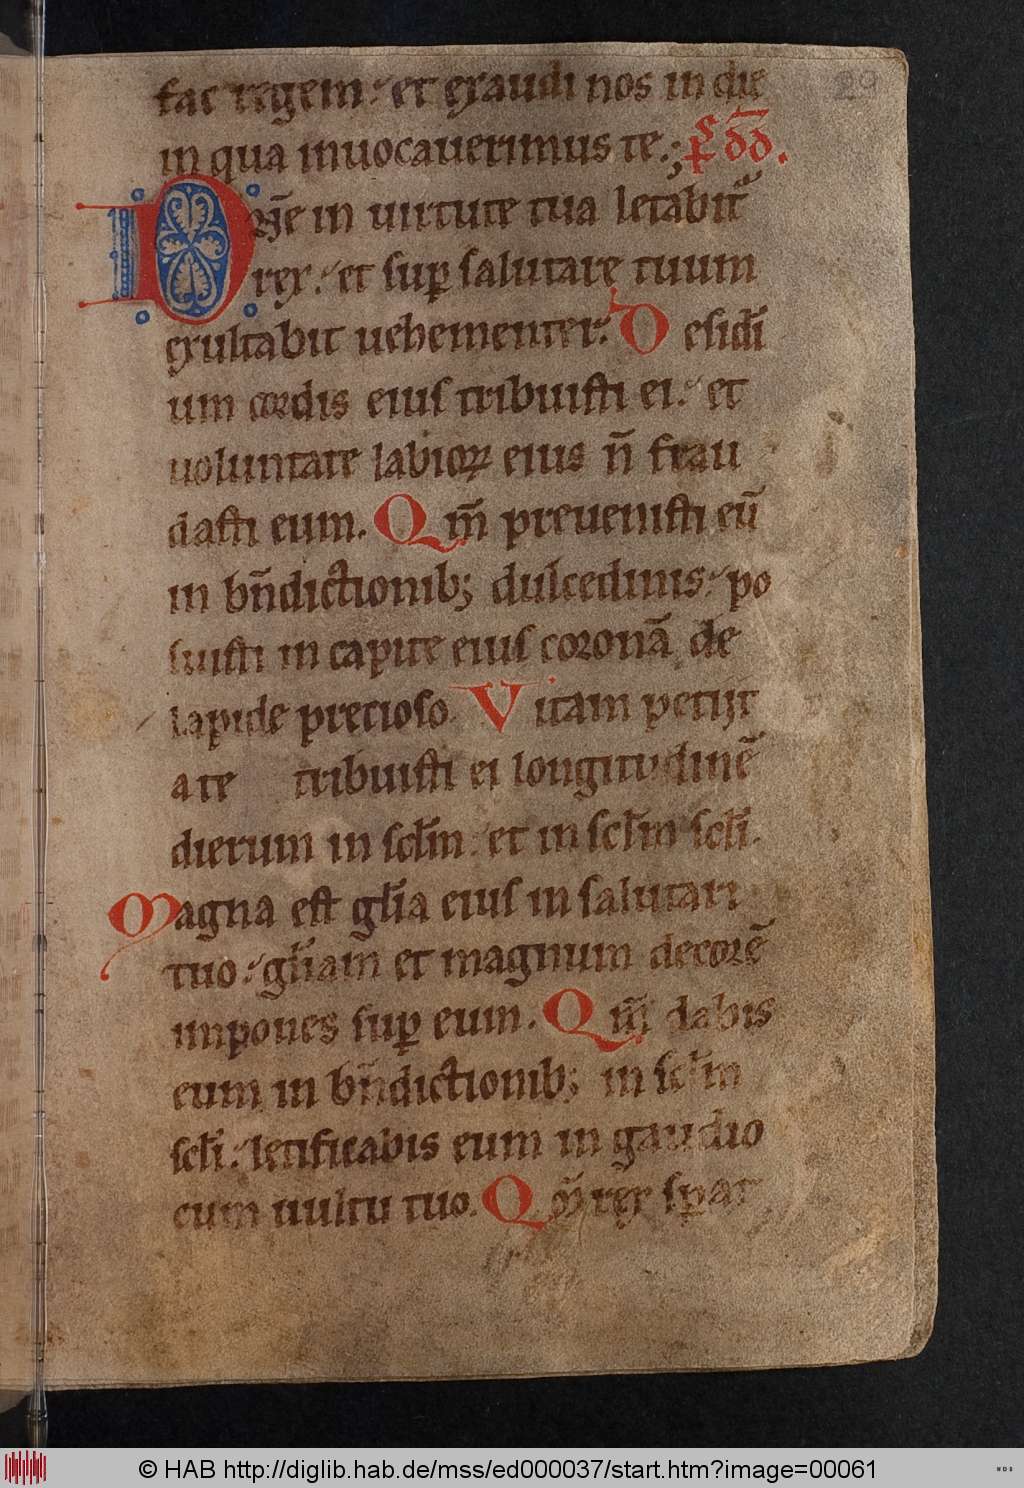 fac regem: et exaudi nos in die
29
in qua inuocauerimus te.; ps dd̅.
Dn̅e in uirtute tua letabit᷑
rex: et suꝑ salutare tuum
exultabit uehementer: Desid̅i
um cordis eius tribuisti ei: et
uoluntate labioꝝ eius n̅ frau
dasti eum. Qm̅ preuenisti eu̅
in bn̅dictionib; dulcedinis: po
suisti in capite eius corona̅ de
lapide precioso. Vitam petijt
a te tribuisti ei longitudine̅
dierum in scl̅m: et in scl̅m scl̅i.
Magna est gl̅ia eius in salutari
tuo: gl̅iam et magnum decore̅
impones suꝑ eum. Qm̅ dabis
eum in bn̅dictionib; in scl̅m
scl̅i: letificabis eum in gaudio
cum uultu tuo. Qm̅ rex sꝑat
© HAB http://diglib.hab.de/mss/ed000037/start.htm?image=00061